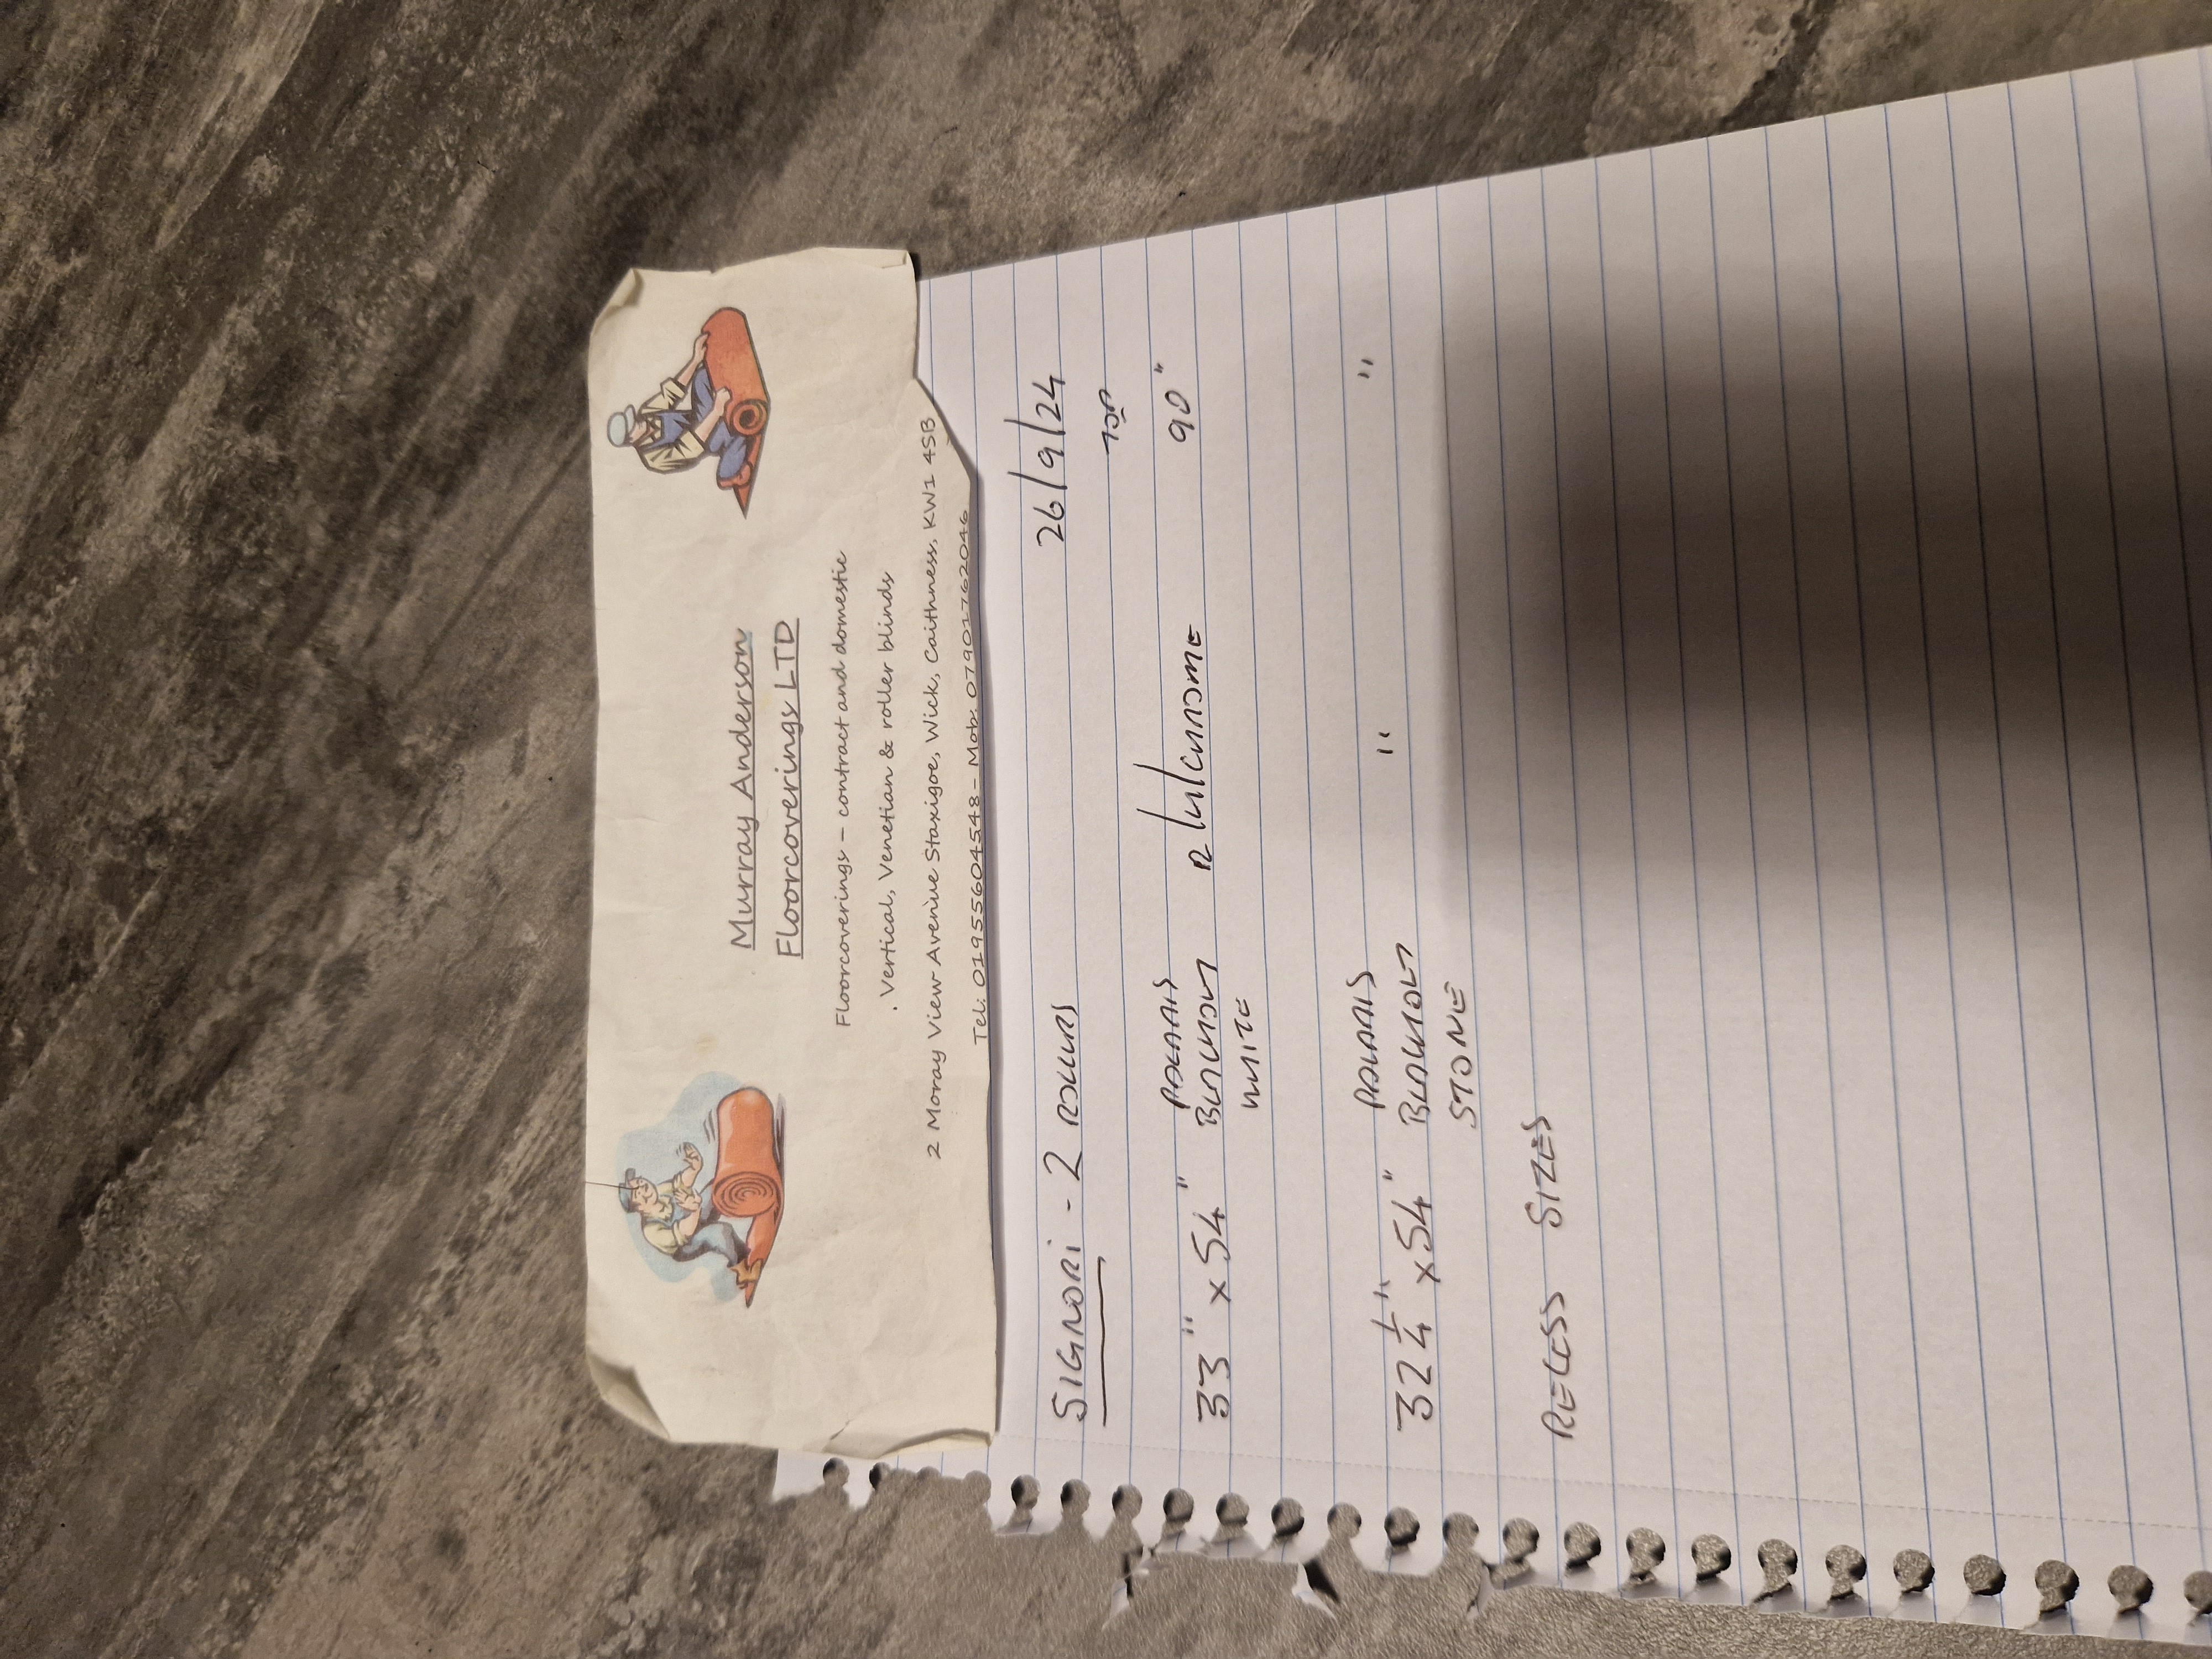 Murray Anderson
Floorcoverings LTD
Floorcoverings – contract and domestic
. Vertical, Venetian & roller blinds
2 Moray View Avenue Staxigoe, Wick, Caithness, KW1 4SB
Tel: 01955604548 – Mob: 07901762046
26/9/24
SIGNORI - 2 ROLLERS
TOP
33" x 54" POLARIS R/H/CHROME 90"
BLACKOUT
WHITE
32 1/4" x 54" POLARIS " "
BLACKOUT
STONE
RECESS SIZES